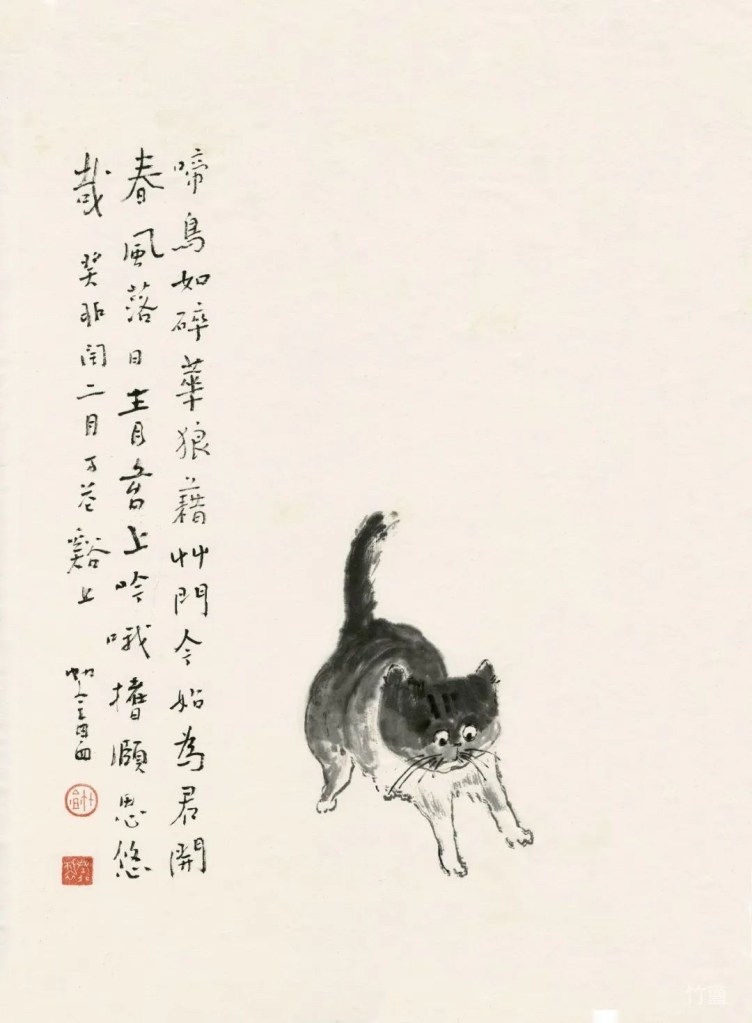 啼鳥如碎華狼藉艸門今始為君開
春風落日青苔上吟哦搘頤思悠
哉 癸卯閏二月谿上